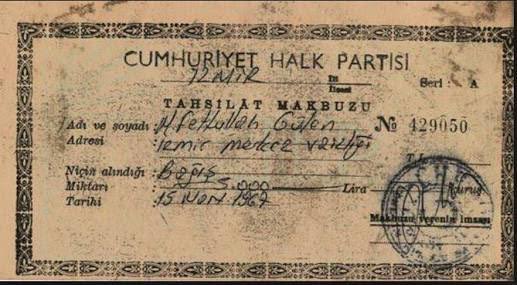 CUMHURİYET HALK PARTİSİ
İZMİR İli
İlcesi
Seri : A
TAHSİLÂT MAKBUZU
Adı ve soyadı : M. Fethullah Gülen № 429050
Adresi : izmir merkez vaizliği
Niçin alındığı : Bağış
Miktarı : 5.000 Lira Kuruş
Tarihi : 15 1967
Makbuzu verenin imzası